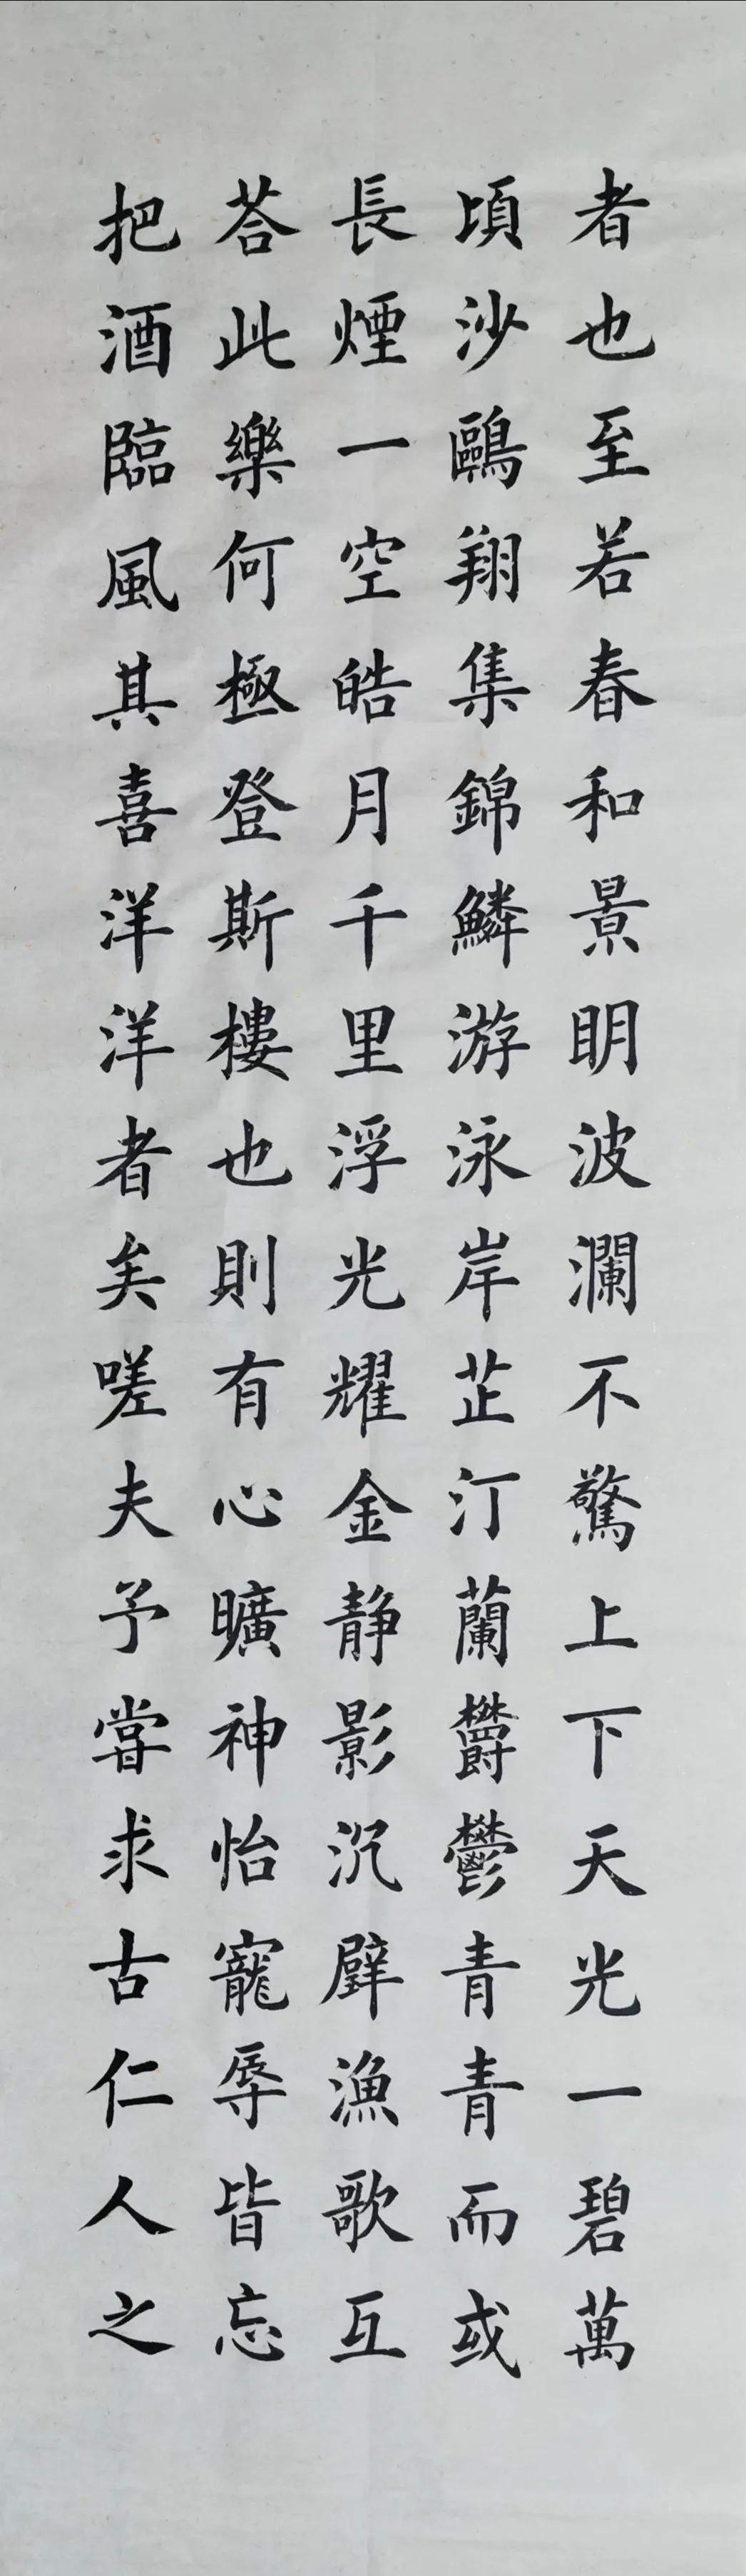 者也至若春和景眀波瀾不驚上下天光一碧萬
頃沙鷗翔集錦鱗游泳岸芷汀蘭欝鬱青青而或
長煙一空皓月千里浮光耀金静影沉璧漁歌互
荅此樂何極登斯樓也則有心曠神怡寵辱皆忘
把酒臨風其喜洋洋者矣嗟夫予甞求古仁人之